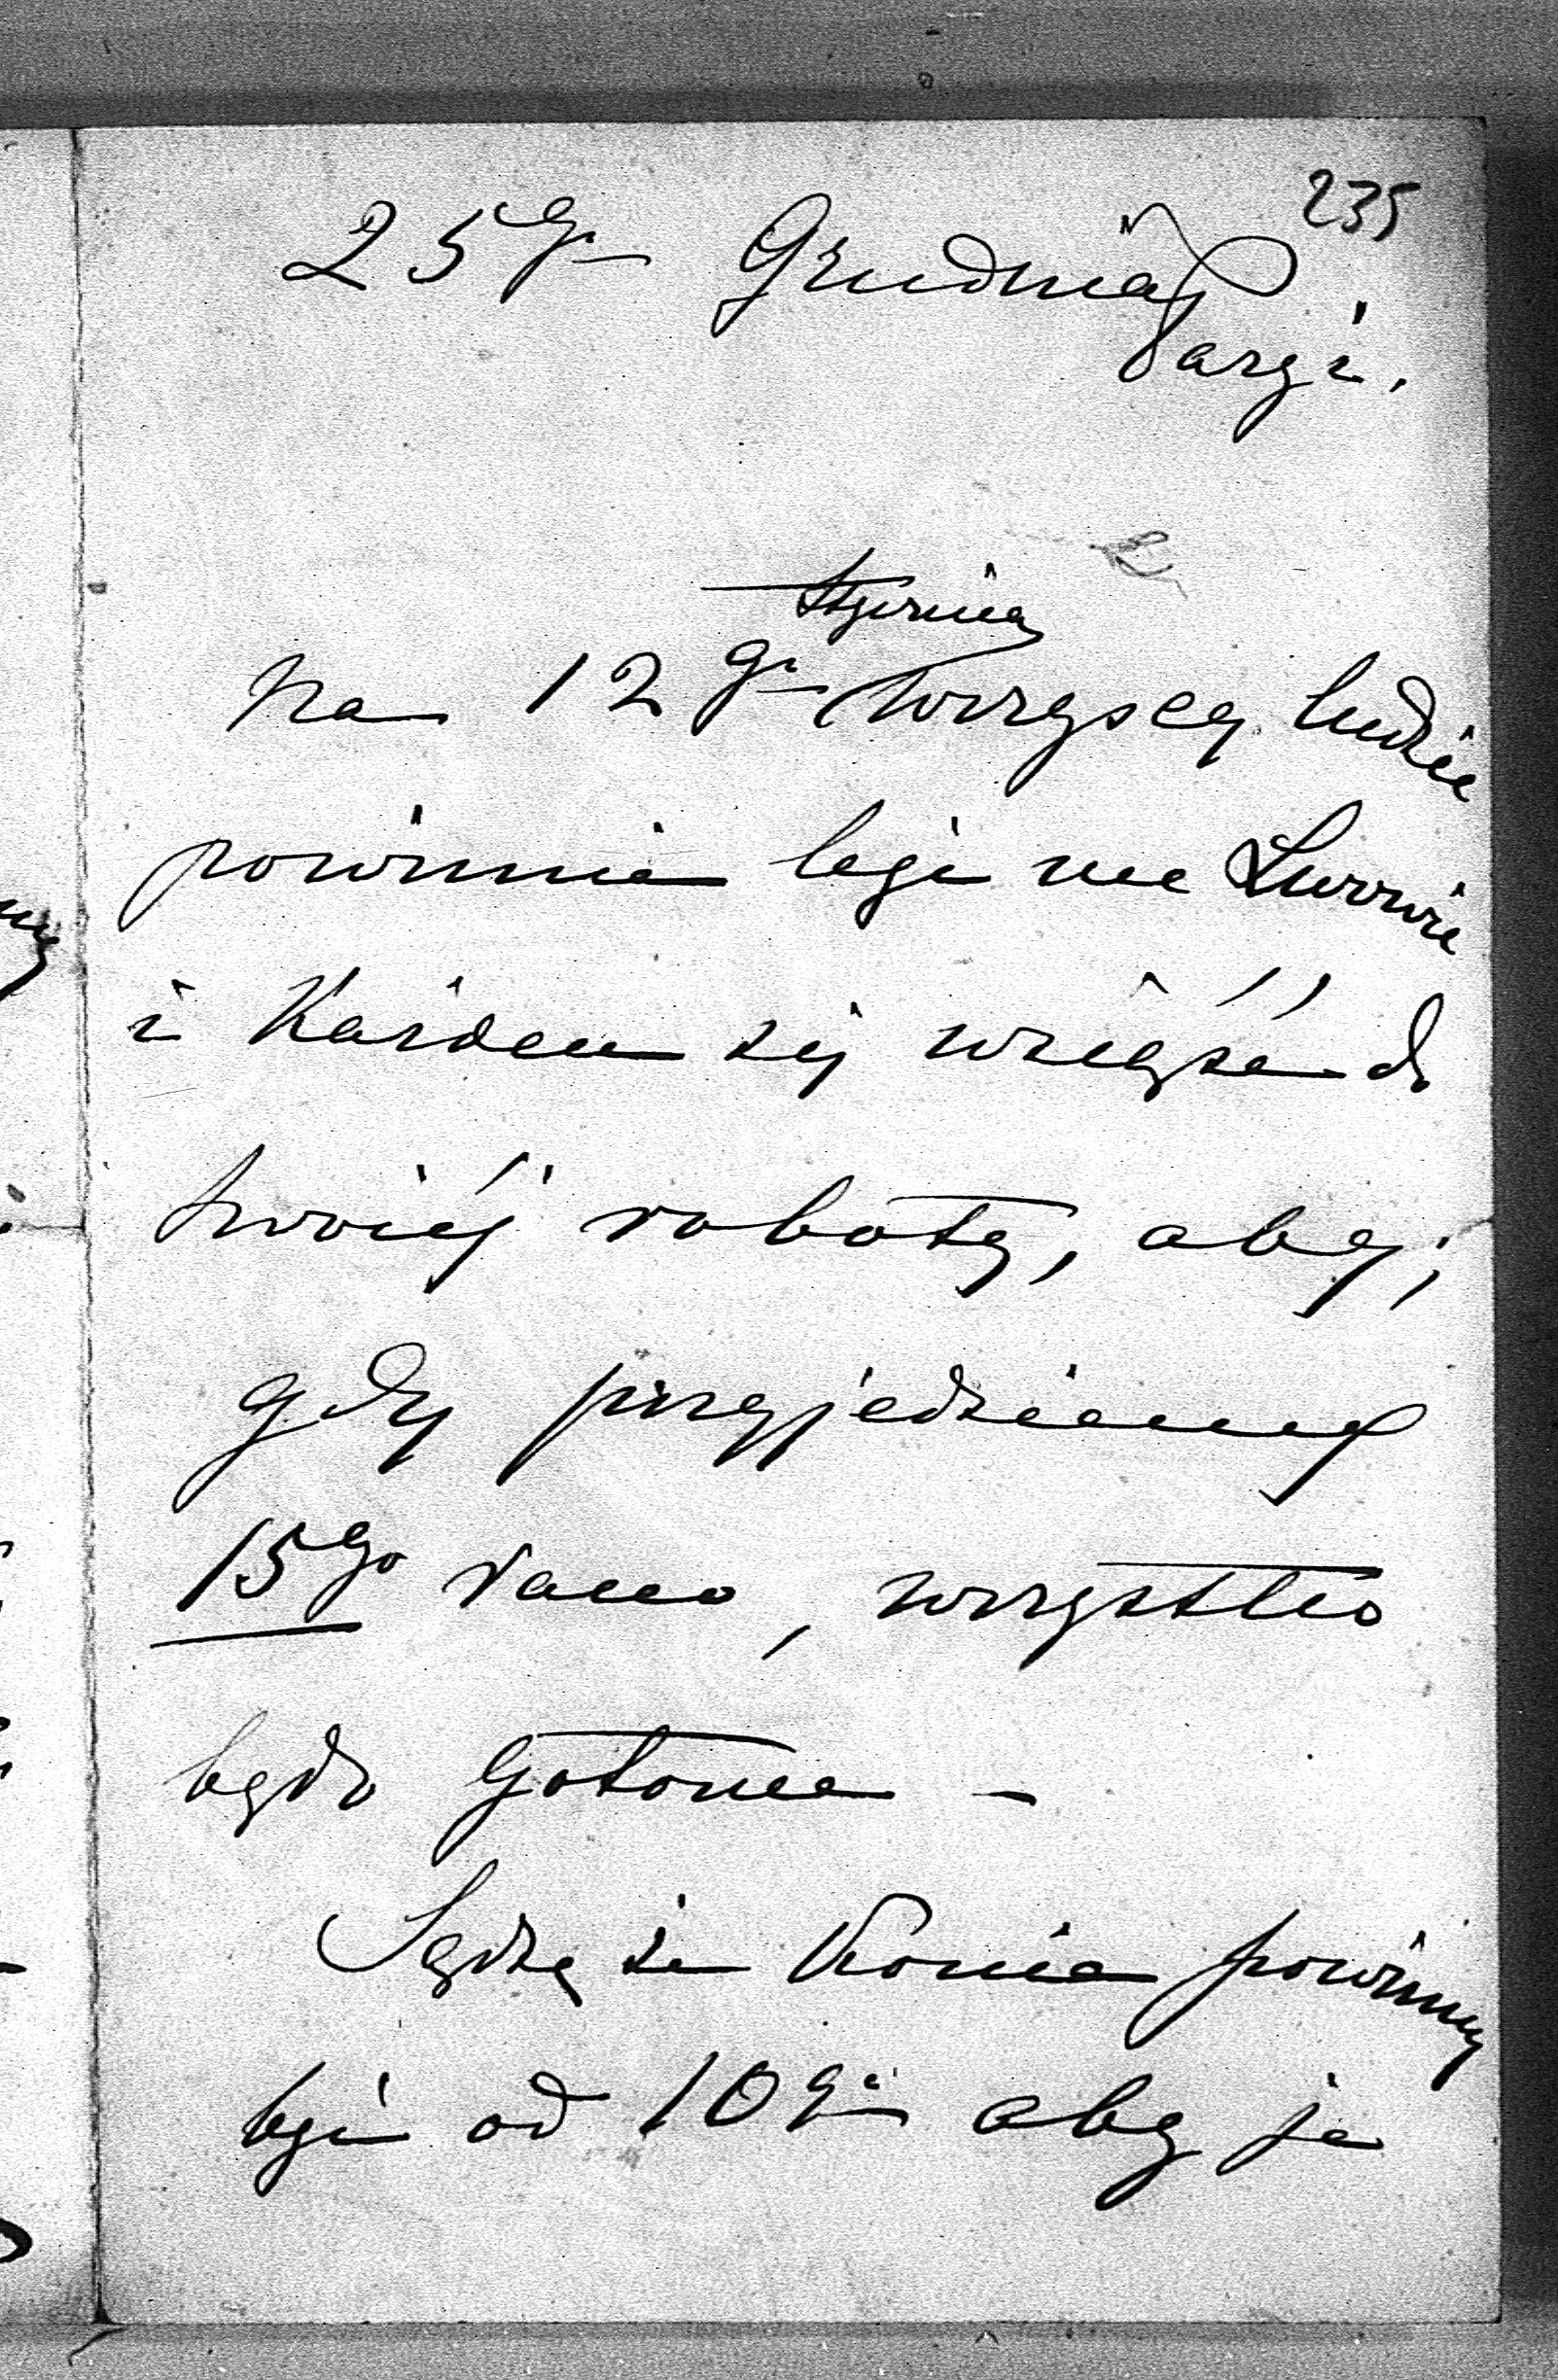 235
25go Grudnia
Paryż.
Stycznia
Na 12go wszyscy ludzie
powinni być we Lwowie
i Każden się wziąść do
swoiéj roboty, aby,
gdy przyjedziemy
15go rano, wszystko
było Gotowe –
Sądzę że Konie powinny
być od 10go aby je